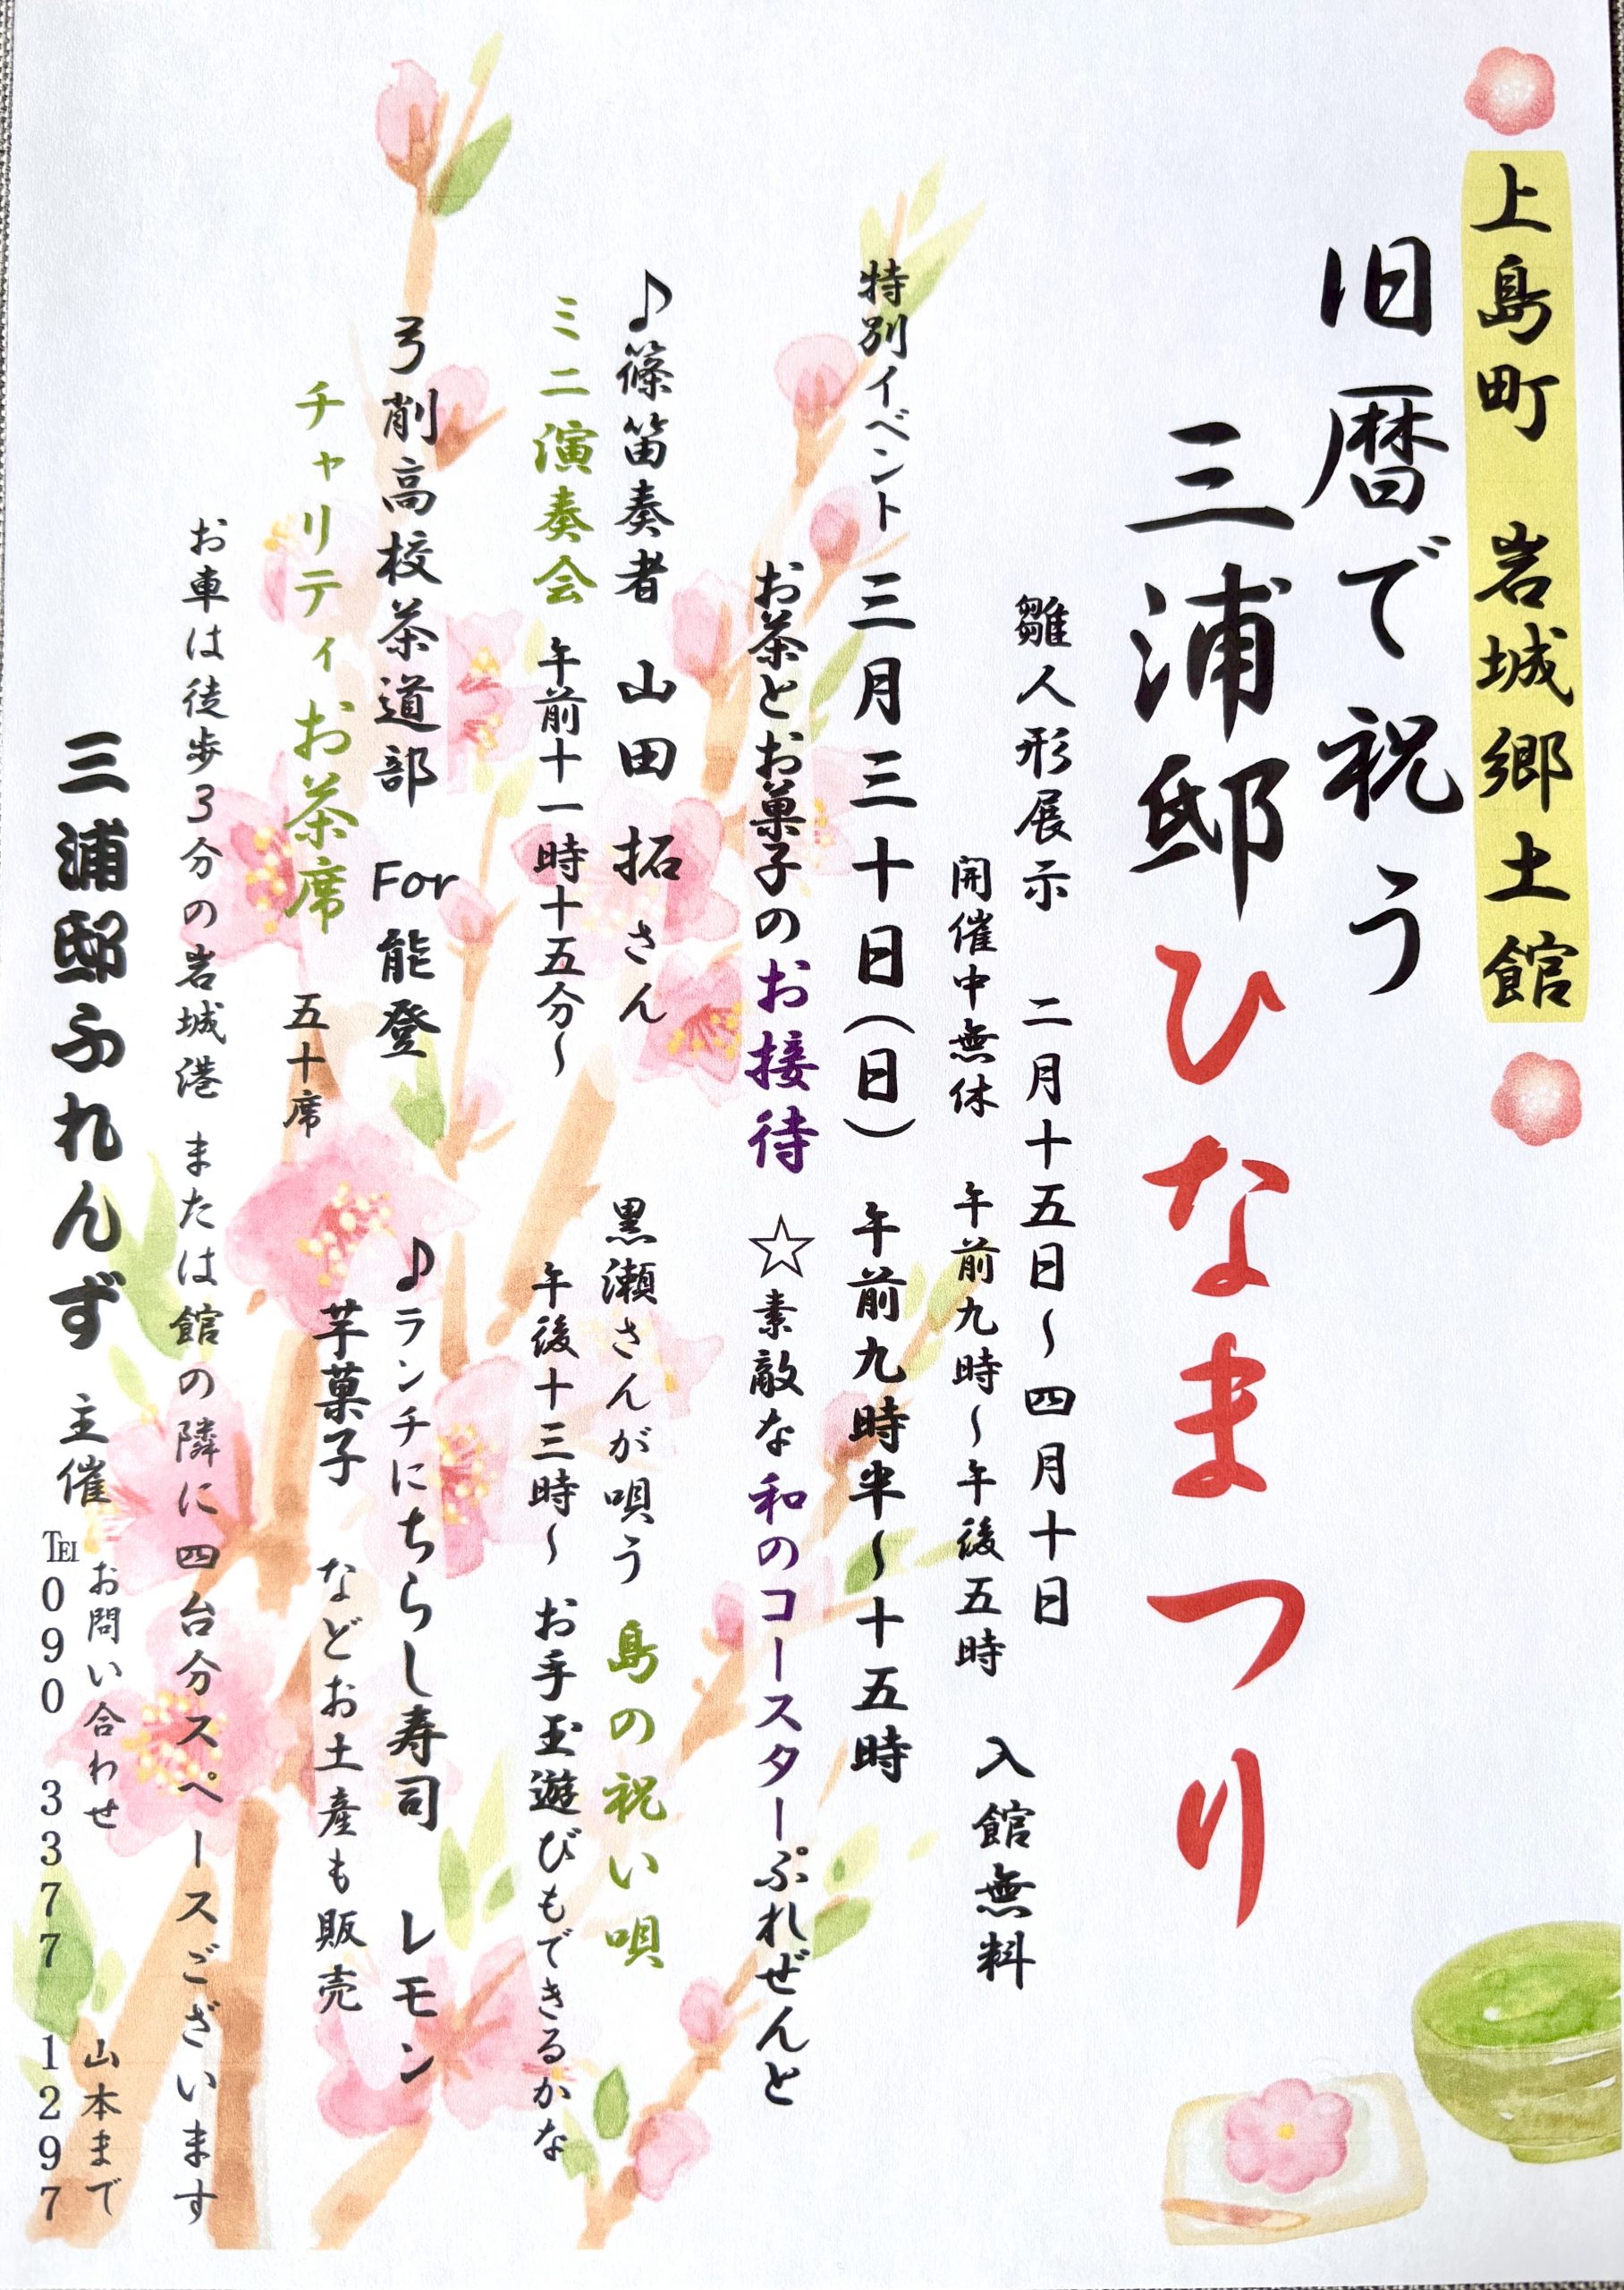 上島町　岩城郷土館
旧暦で祝う
三浦邸ひなまつり
雛人形展示　二月十五日～四月十日
開催中無休　午前九時～午後五時　入館無料
特別イベント　三月三十日（日）　午前九時半～十五時
お茶とお菓子のお接待　☆素敵な和のコースターぷれぜんと
♪篠笛奏者　山田　拓さん
ミニ演奏会　午前十一時十五分～
黒瀬さんが唄う　島の祝い唄
午後十三時～　お手玉遊びもできるかな
弓削高校茶道部　For能登
チャリティお茶席　五十席
♪ランチにちらし寿司　レモン
芋菓子　などお土産も販売
お車は徒歩３分の岩城港　または館の隣に四台分スペースございます
三浦邸ふれんず　主催
お問い合わせ　山本まで
℡090 3377 1297